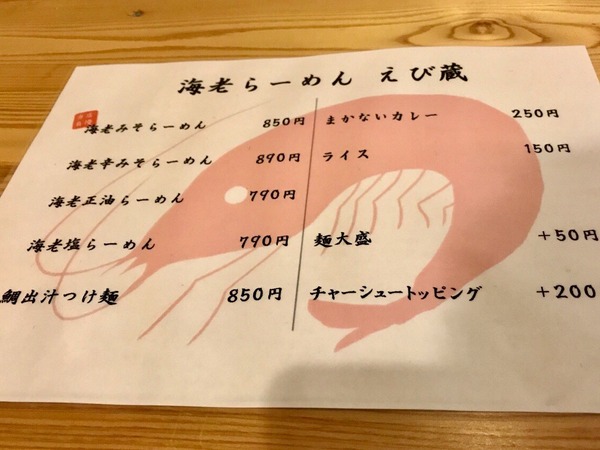 海老らーめん えび蔵
海老みそらーめん 850円
海老辛みそらーめん 890円
海老正油らーめん 790円
海老塩らーめん 790円
鯛出汁つけ麺 850円
まかないカレー 250円
ライス 150円
麺大盛 +50円
チャーシュートッピング +200